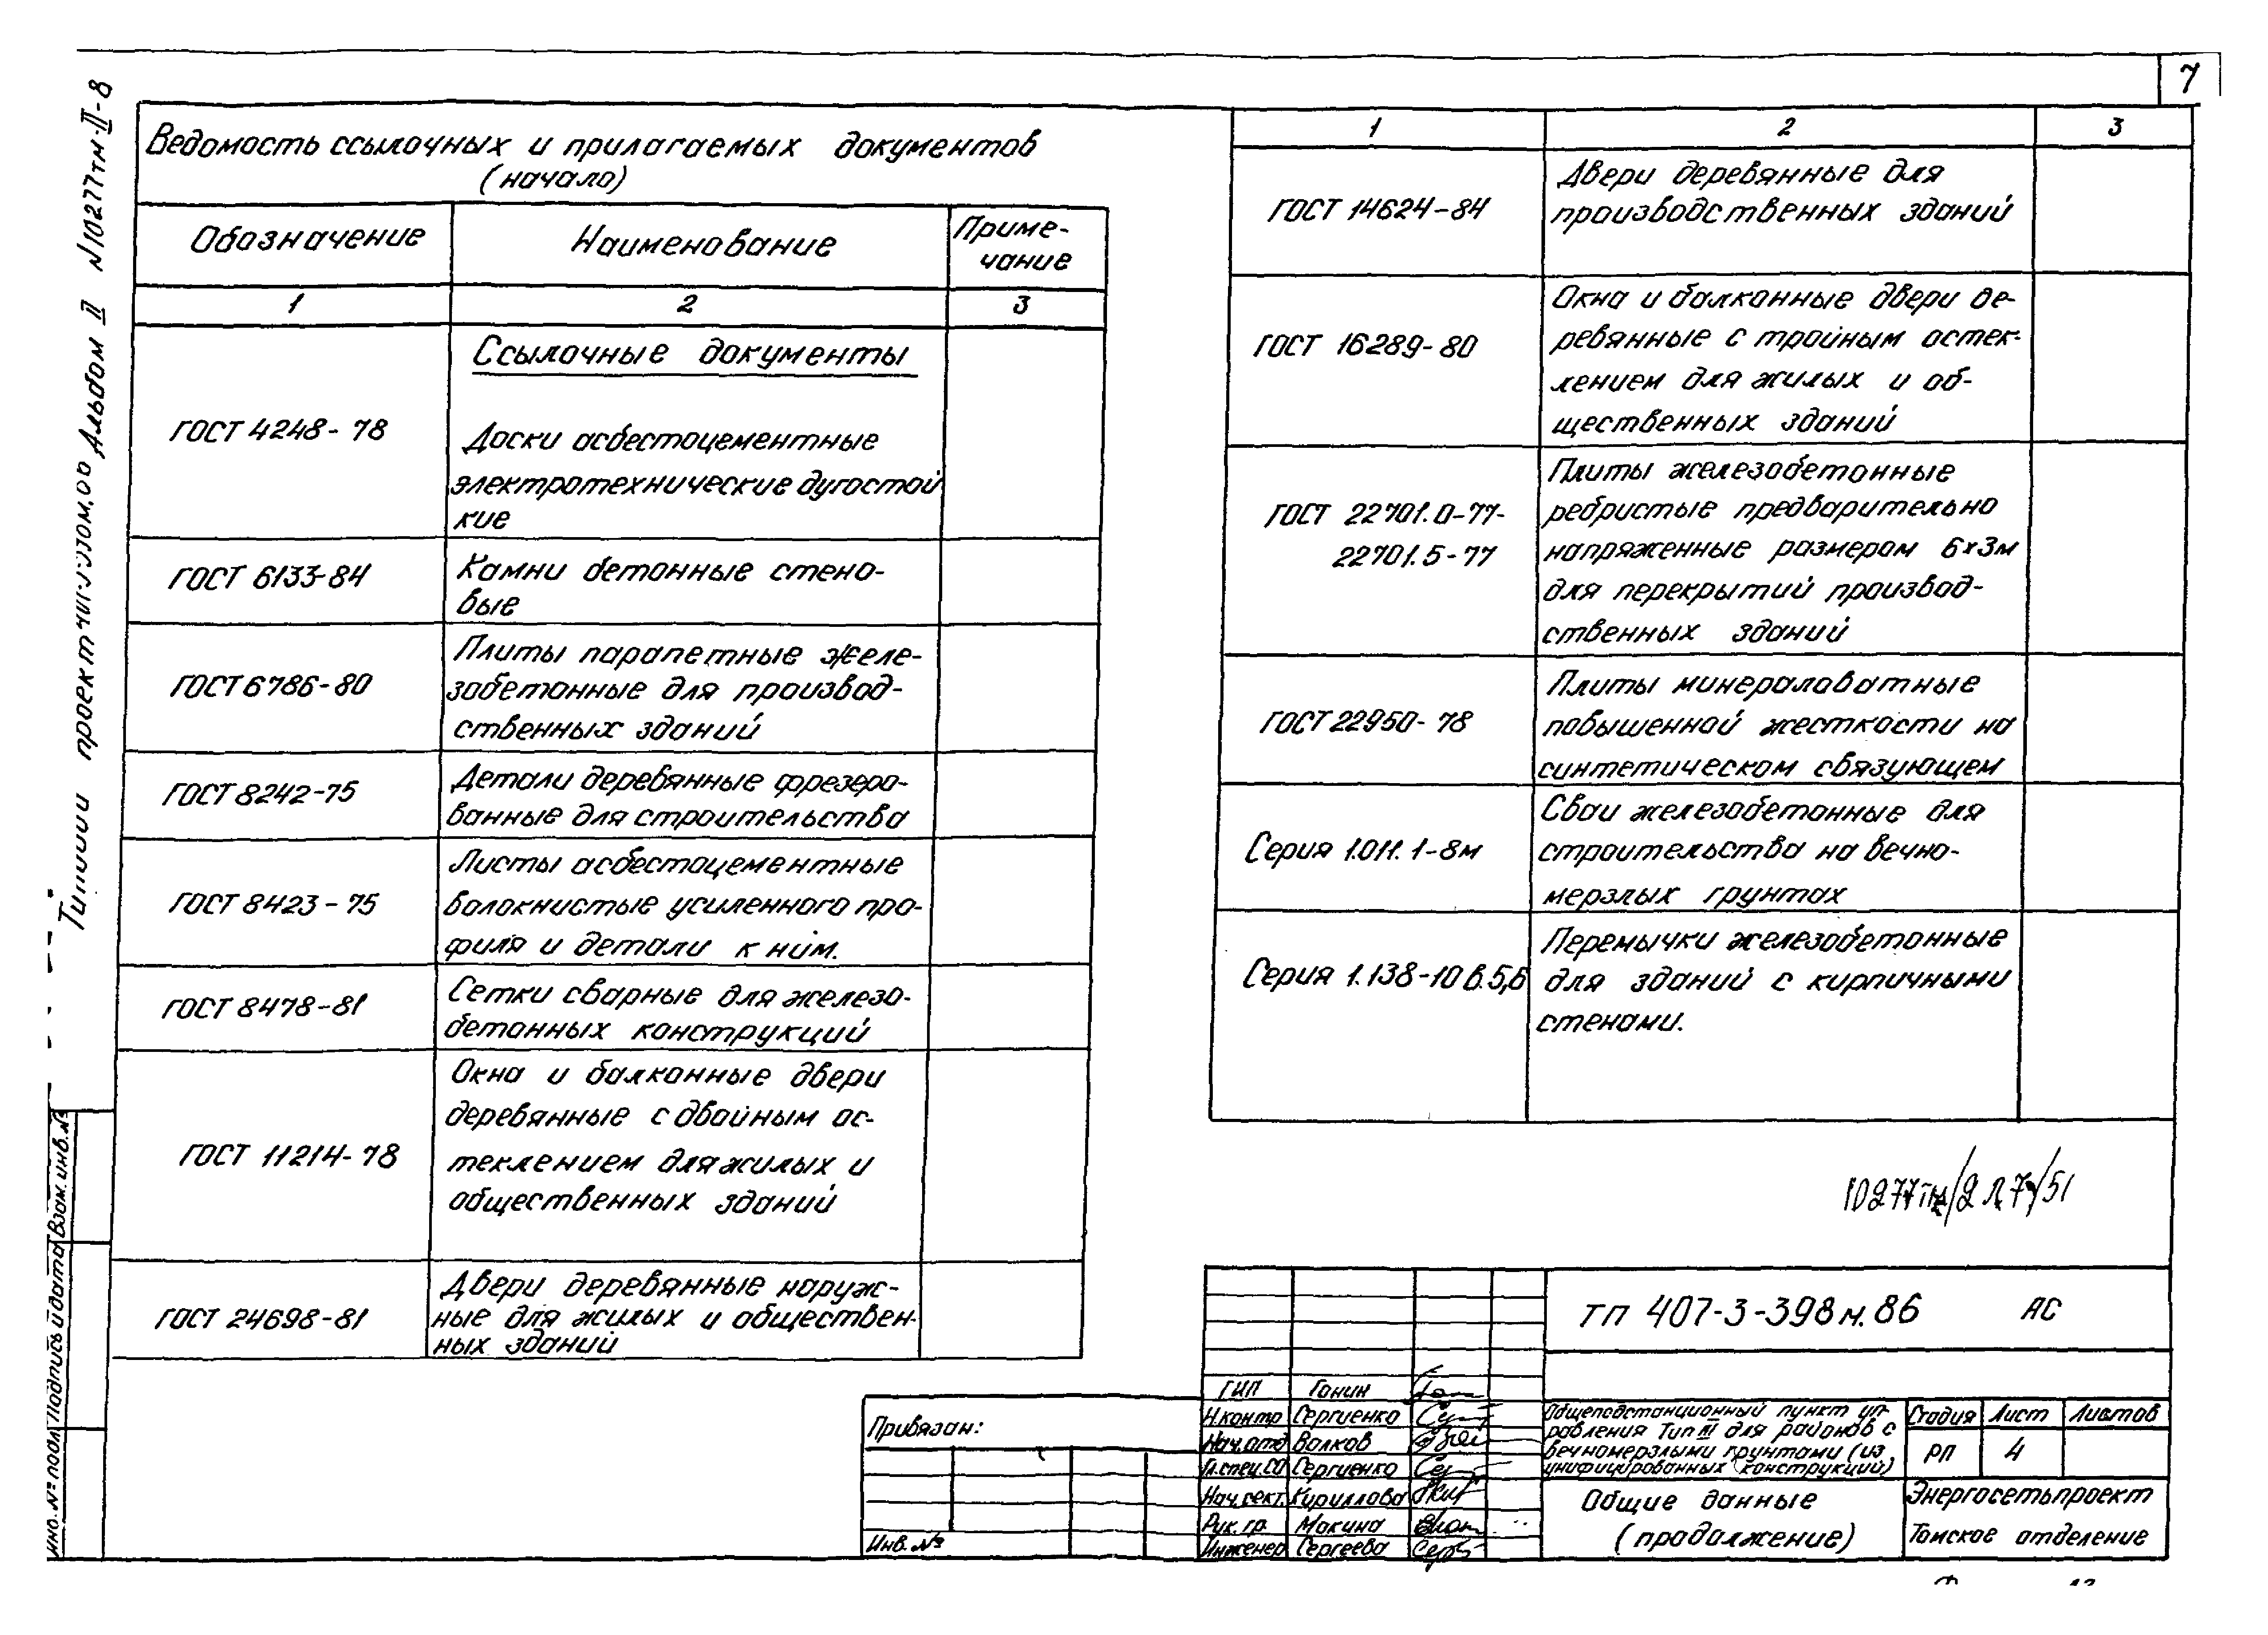 7
N10277тм-II-8
Альбом II
Ведомость ссылочных и прилагаемых документов
(начало)
Обозначение Наименование Приме-
чание
1 2 3
Ссылочные документы
ГОСТ 4248-78 Доски асбестоцементные
электротехнические дугостой
кие
ГОСТ 6133-84 Камни бетонные стено-
вые
ГОСТ 6786-80 Плиты парапетные желе-
зобетонные для производ-
ственных зданий
ГОСТ 8242-75 Детали деревянные фрезеро-
ванные для строительства
ГОСТ 8423-75 Листы асбестоцементные
волокнистые усиленного про-
филя и детали к ним.
ГОСТ 8478-81 Сетки сварные для железо-
бетонных конструкций
ГОСТ 11214-78 Окна и балконные двери
деревянные с двойным ос-
теклением для жилых и
общественных зданий
ГОСТ 24698-81 Двери деревянные наруж-
ные для жилых и обществен-
ных зданий
1 2 3
ГОСТ 14624-84 Двери деревянные для
производственных зданий
ГОСТ 16289-80 Окна и балконные двери де-
ревянные с тройным остек-
лением для жилых и об-
щественных зданий
ГОСТ 22701.0-77- Плиты железобетонные
22701.5-77 ребристые предварительно
напряженные размером 6х3м
для перекрытий производ-
ственных зданий
ГОСТ 22950-78 Плиты минераловатные
повышенной жесткости на
синтетическом связующем
Серия 1.011.1-8м Сваи железобетонные для
строительства на вечно-
мерзлых грунтах
Серия 1.138-10 в.5,6 Перемычки железобетонные
для зданий с кирпичными
стенами.
10277тм/2 л.7/51
тп 407-3-398м.86 АС
ГИП Гонин
Н.контр Сергиенко
Нач.отд Волков
Гл.спец.СО Сергиенко
Нач.сект. Кириллова
Рук. гр. Мокина
Инженер Сергеева
Общеподстанционный пункт уп-
равления Тип III для районов с
вечномерзлыми грунтами (из
унифицированных конструкций)
Стадия Лист Листов
РП 4
Общие данные
(продолжение)
Энергосетьпроект
Томское отделение
Привязан:
Инв. №
Взам. инв. №
Подпись и дата
Инв. № подл